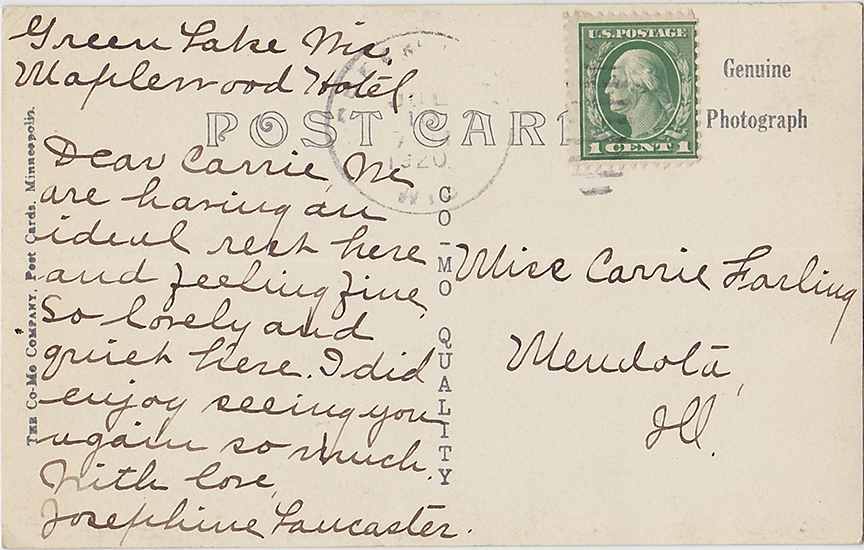 Green Lake Wis.
Maplewood Hotel
POST CARD
Dear Carrie, We
are having an
ideal rest here
and feeling fine,
So lovely and
quiet here. I did
enjoy seeing you
again so much.
With love,
Josephine Lancaster.
THE CO-MO COMPANY, Post Cards, Minneapolis.
CO-MO QUALITY
JUL
1920
WIS
U.S. POSTAGE
1 CENT 1
Genuine
Photograph
Miss Carrie Farling
Mendota,
Ill.